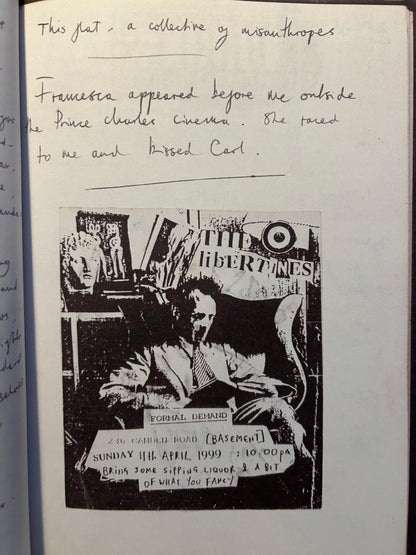 This flat, a collective of misanthropes
Francesca appeared before me outside
the Prince Charles Cinema. She raced
to me and kissed Carl.
THE
libERTINES
FORMAL DEMAND
236 CAMDEN ROAD [BASEMENT]
SUNDAY 11th APRIL 1999 : 10.00pm
BRING SOME SIPPING LIQUOR & A BIT
OF WHAT YOU FANCY